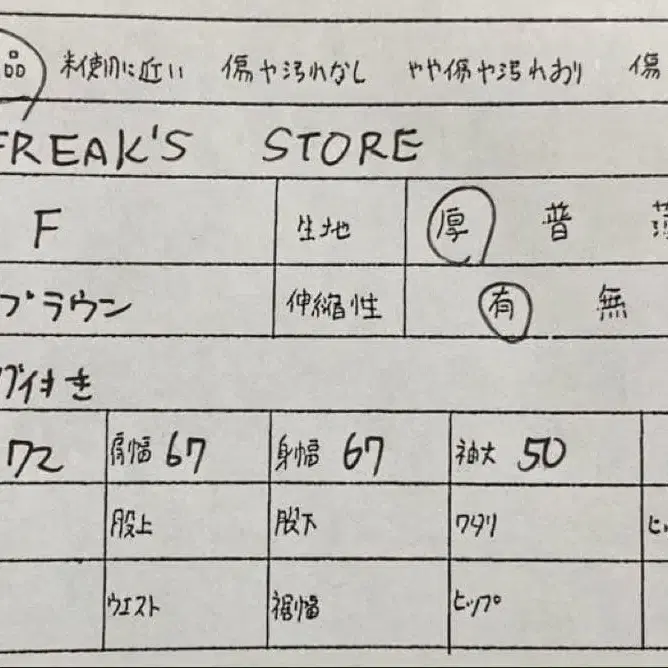 品 未使用に近い 傷や汚れなし やや傷や汚れあり 傷
FREAK'S STORE
F 生地 厚 普 薄
ブラウン 伸縮性 有 無
グ付き
72 肩幅 67 身幅 67 袖丈 50
股上 股下 ワタリ ヒ
ウエスト 裾幅 ヒップ